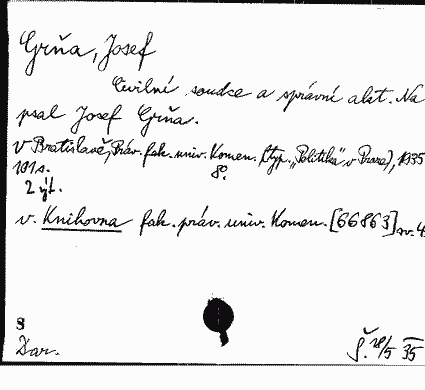 Grňa, Josef
Civilní soudce a správní akt. Na
psal Josef Grňa.
V Bratislavě, Práv. fak. univ. Komen. (typ. „Politika" v Praze), 1935
8°.
101 s.
2 výt.
v. Knihovna fak. práv. univ. Komen. [66863] sv. 4.
8
Dar.
Š. 28/5 35